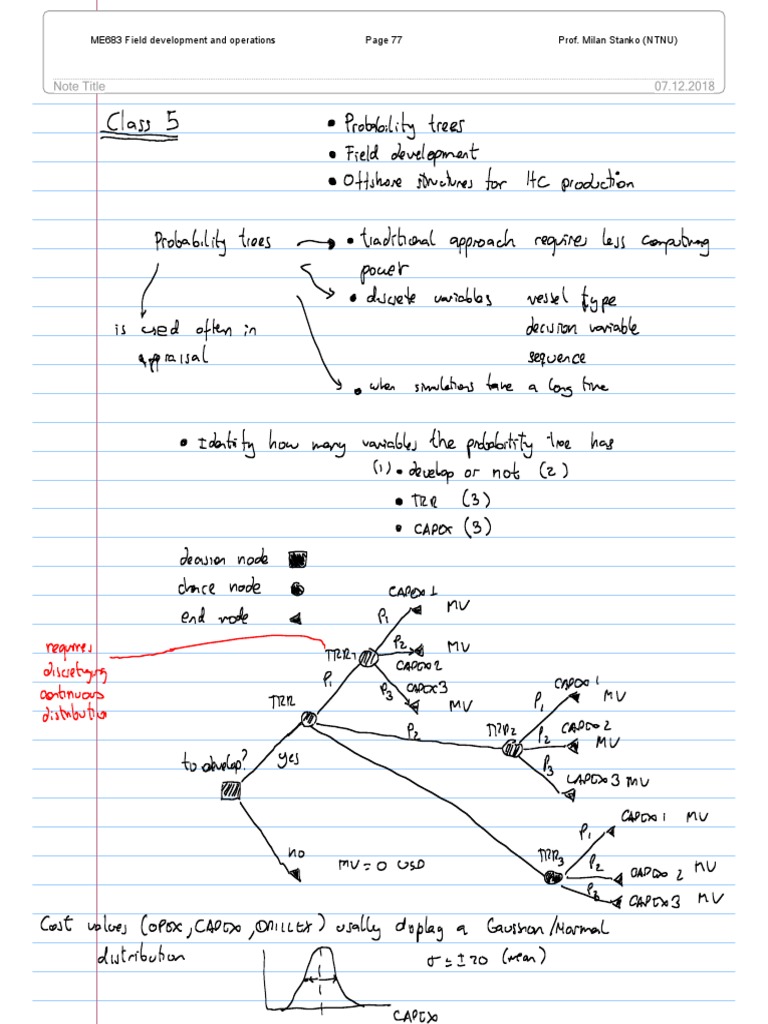 ME683 Field development and operations Page 77 Prof. Milan Stanko (NTNU)
Note Title 07.12.2018
Class 5
• Probability trees
• Field development
• Offshore structures for HC production
Probability trees • traditional approach requires less computing
power
• discrete variables vessel type
is used often in decision variable
appraisal sequence
• when simulations take a long time
• Identify how many variables the probability tree has
(1) • develop or not (2)
• TRR (3)
• CAPEX (3)
decision node
chance node
end node
requires
discretizing
continuous
distribution
CAPEX 1
P1 MV
TRR1 P2 MV
CAPEX 2
P3 CAPEX 3
MV
P1
TRR
P2
TRR2
CAPEX 1
P1 MV
CAPEX 2
P2 MV
P3
CAPEX 3 MV
to develop? yes
CAPEX 1 MV
P1
TRR3
P2 CAPEX 2 MV
P3 CAPEX 3 MV
no MV = 0 USD
Cost values (OPEX, CAPEX, DRILLEX) usally display a Gaussian/Normal
distribution σ = ±20 (mean)
CAPEX